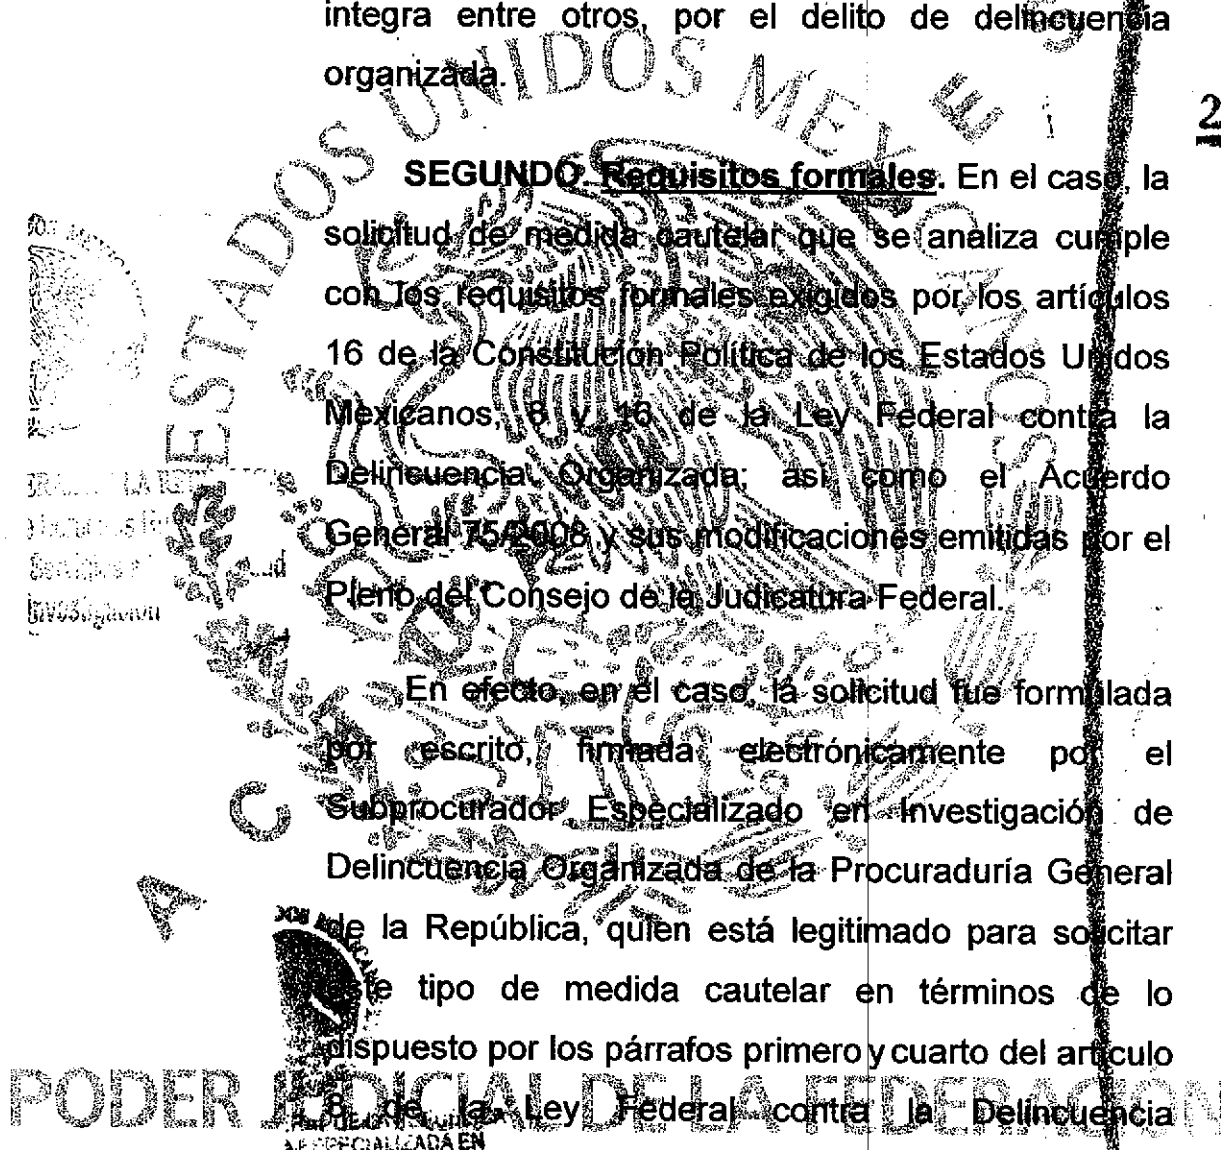 integra entre otros, por el delito de delincuencia
organizada.
2
SEGUNDO. Requisitos formales. En el caso, la
solicitud de medida cautelar que se analiza cumple
con los requisitos formales exigidos por los artículos
16 de la Constitución Política de los Estados Unidos
Mexicanos, 8 y 16 de la Ley Federal contra la
Delincuencia Organizada; así como el Acuerdo
General 75/2008 y sus modificaciones emitidas por el
Pleno del Consejo de la Judicatura Federal.
En efecto, en el caso, la solicitud fue formulada
por escrito, firmada electrónicamente por el
Subprocurador Especializado en Investigación de
Delincuencia Organizada de la Procuraduría General
de la República, quien está legitimado para solicitar
este tipo de medida cautelar en términos de lo
dispuesto por los párrafos primero y cuarto del artículo
8 de la Ley Federal contra la Delincuencia
ESTADOS UNIDOS MEXICANOS
PODER JUDICIAL DE LA FEDERACION